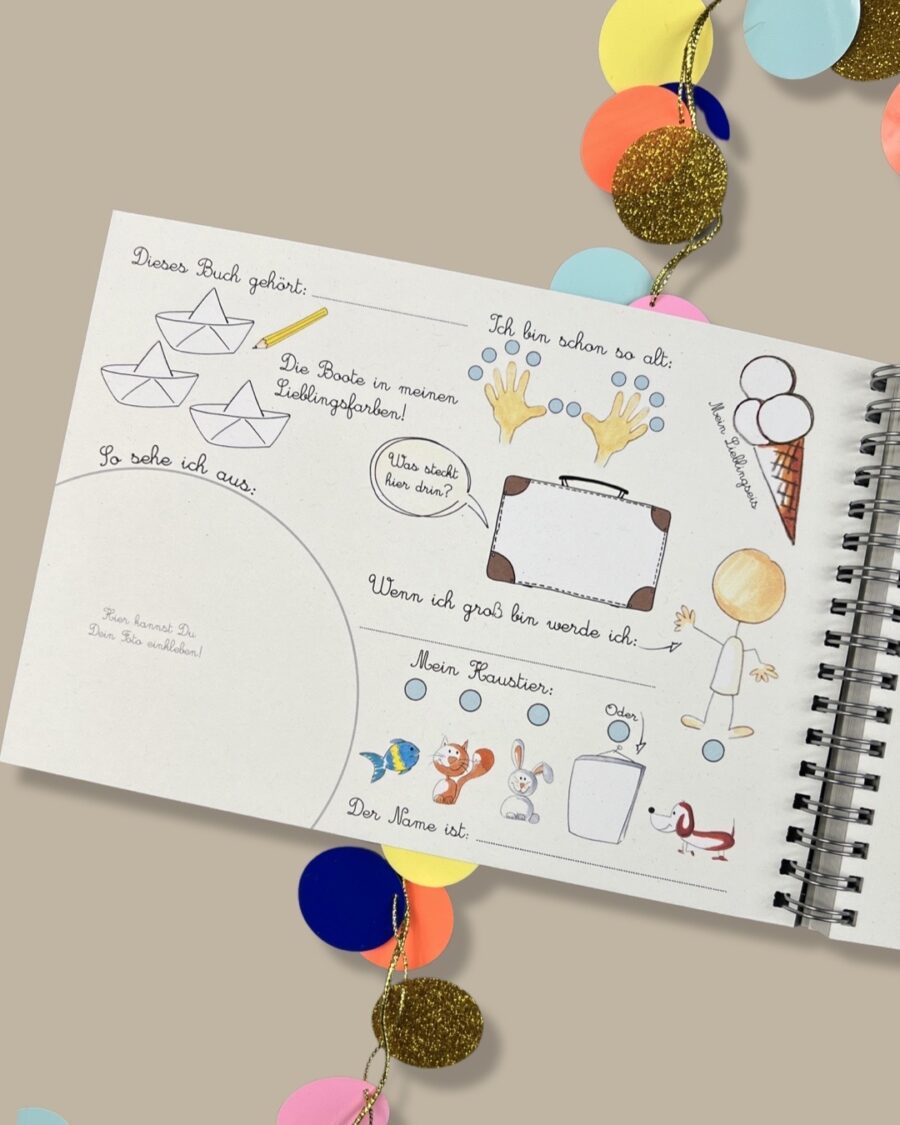 Dieses Buch gehört:
Ich bin schon so alt:
Die Boote in meinen
Lieblingsfarben!
Mein Lieblingseis
So sehe ich aus:
Was steckt
hier drin?
Hier kannst Du
Dein Foto einkleben!
Wenn ich groß bin werde ich:
Mein Haustier:
Oder
Der Name ist: